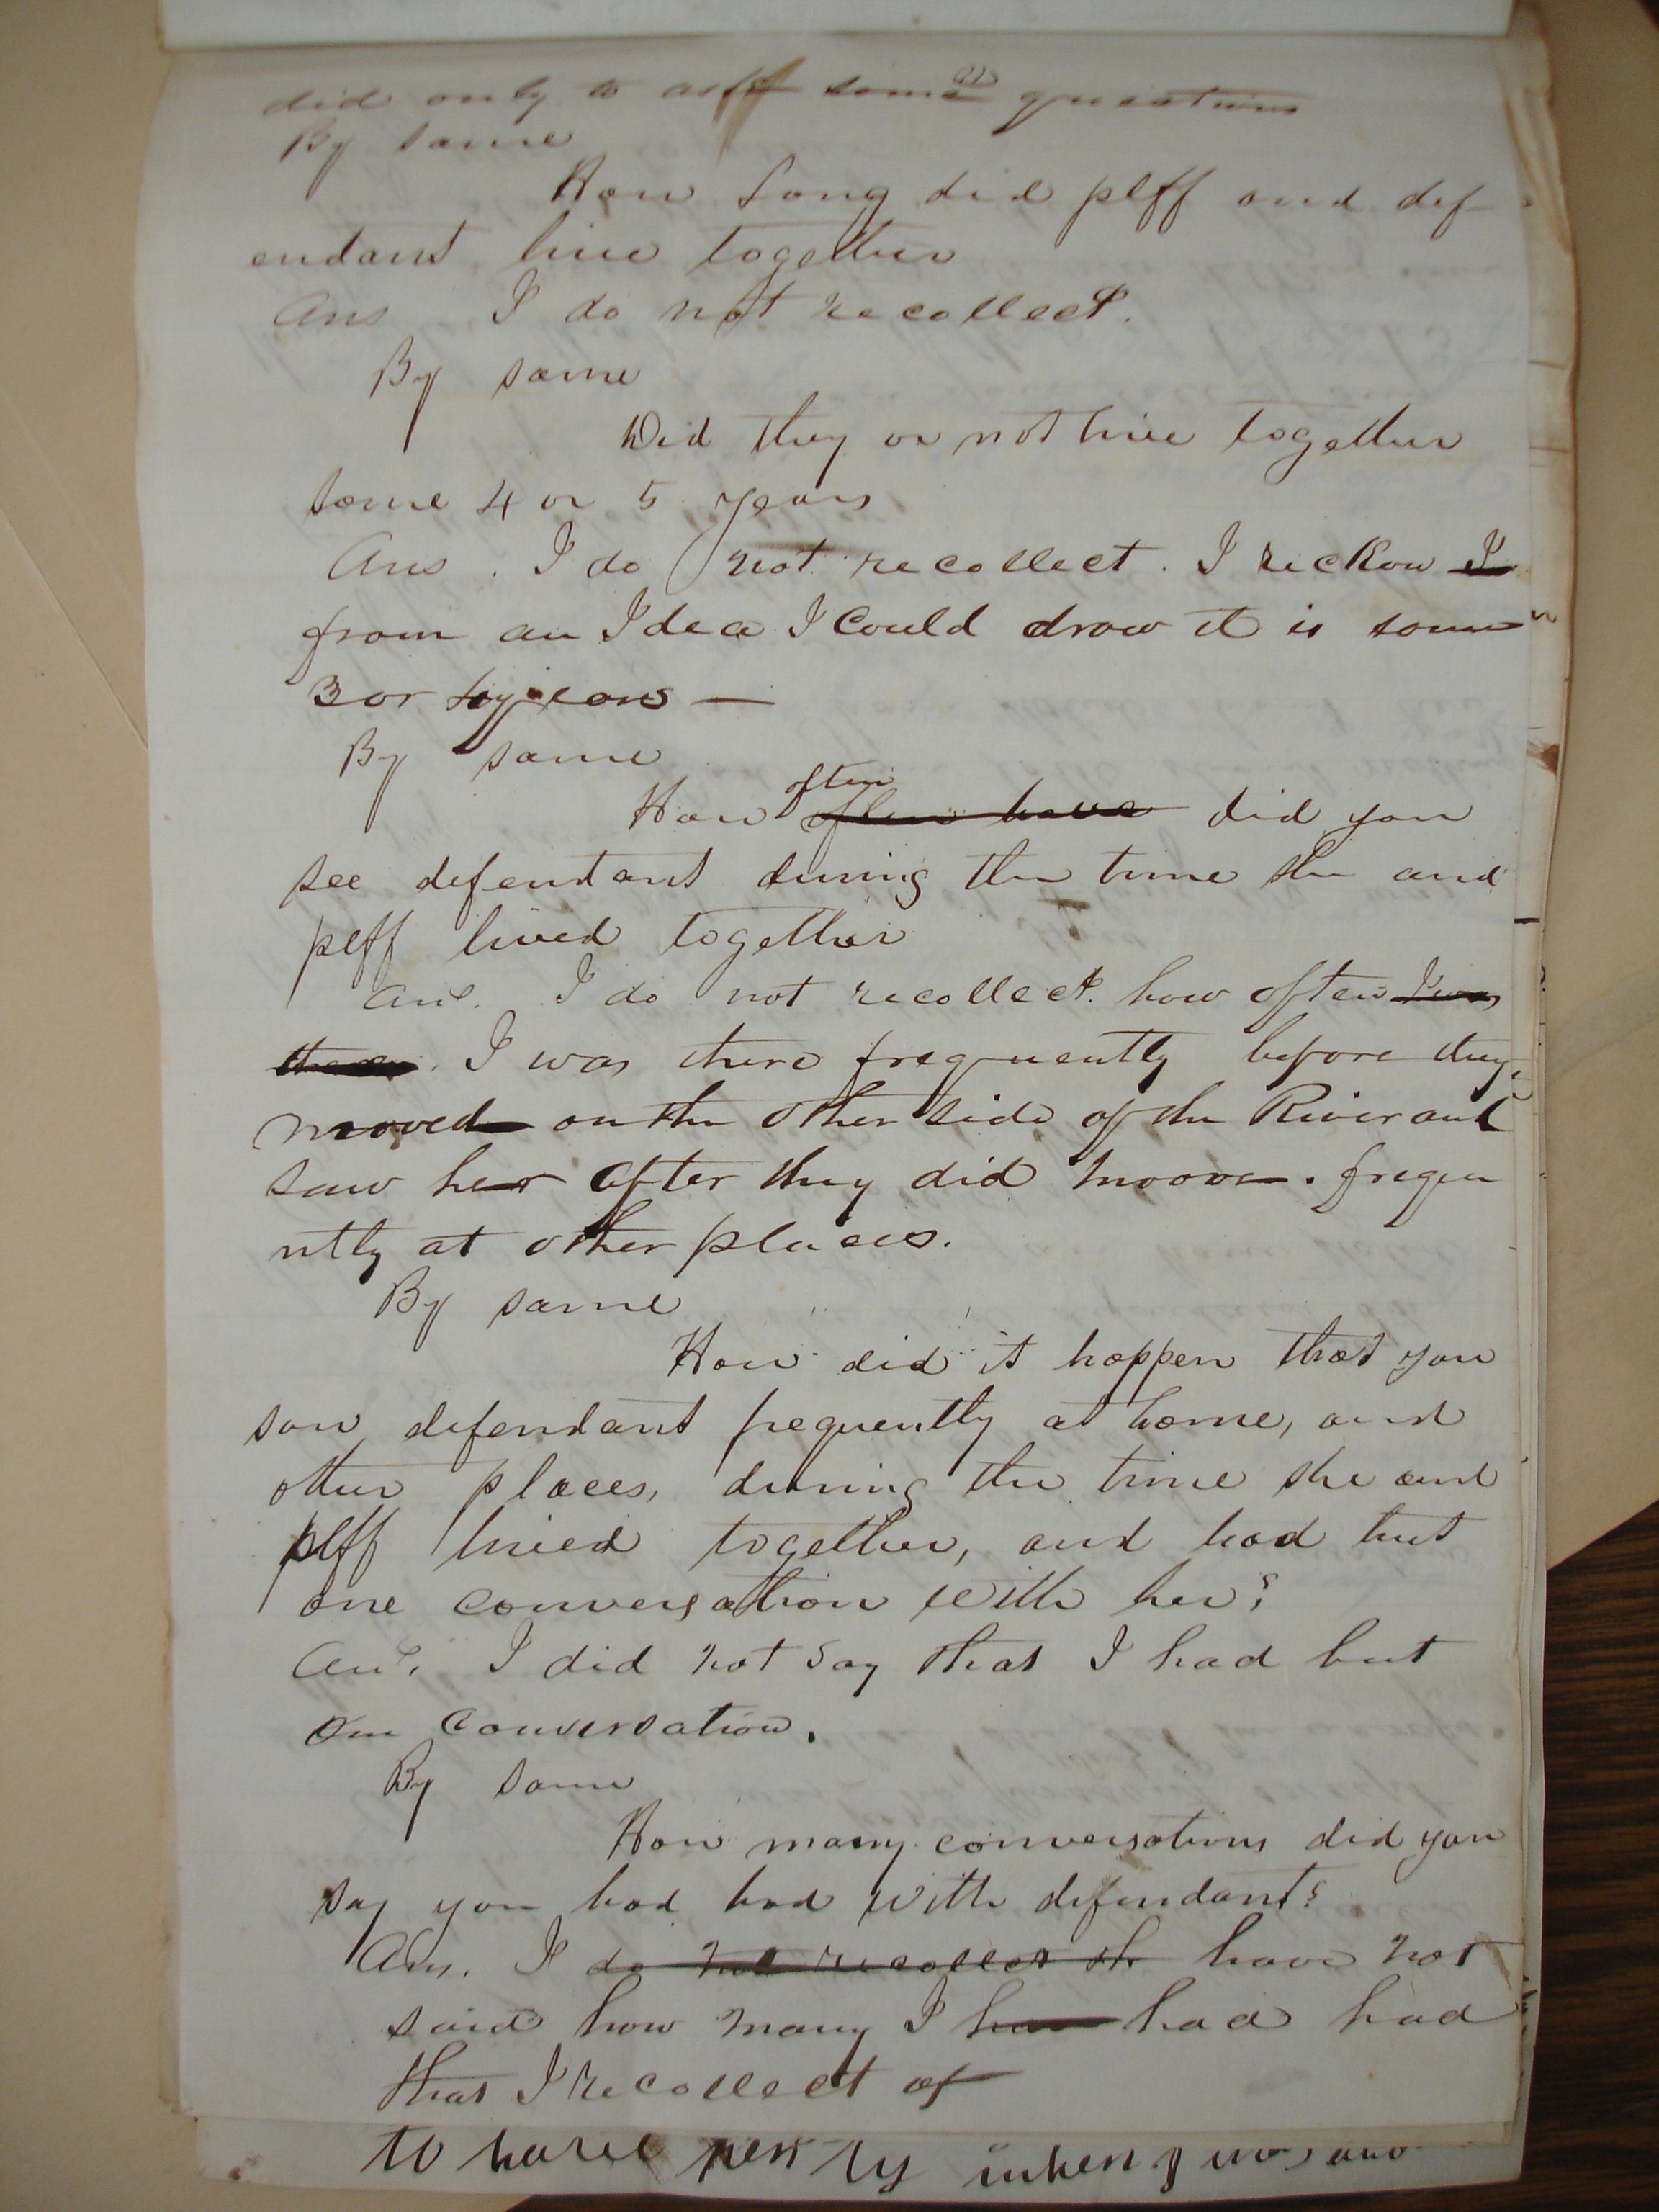 did only to ask some questions
By same
How long did plff and def
endant live together
Ans I do not recollect.
By same
Did they or not live together
some 4 or 5 years
Ans. I do not recollect. I reckon I
from an Idea I Could draw it is some
3 or years —
By same
often
How often have did you
see defendant during the time she and
plff lived together
Ans. I do not recollect. how often I was
there. I was there frequently before they
moved on the other side of the River and
saw her after they did moove. frequ
ntly at other places.
By same
How did it happen that you
saw defendant frequently at home, and
other places, during the time she and
plff lived together, and had but
one conversation with her?
Ans. I did not say that I had but
one Conversation.
By same
How many conversations did you
say you had had with defendant?
Ans. I do not recollect th have not
said how many I have had had
that I recollect of
to have